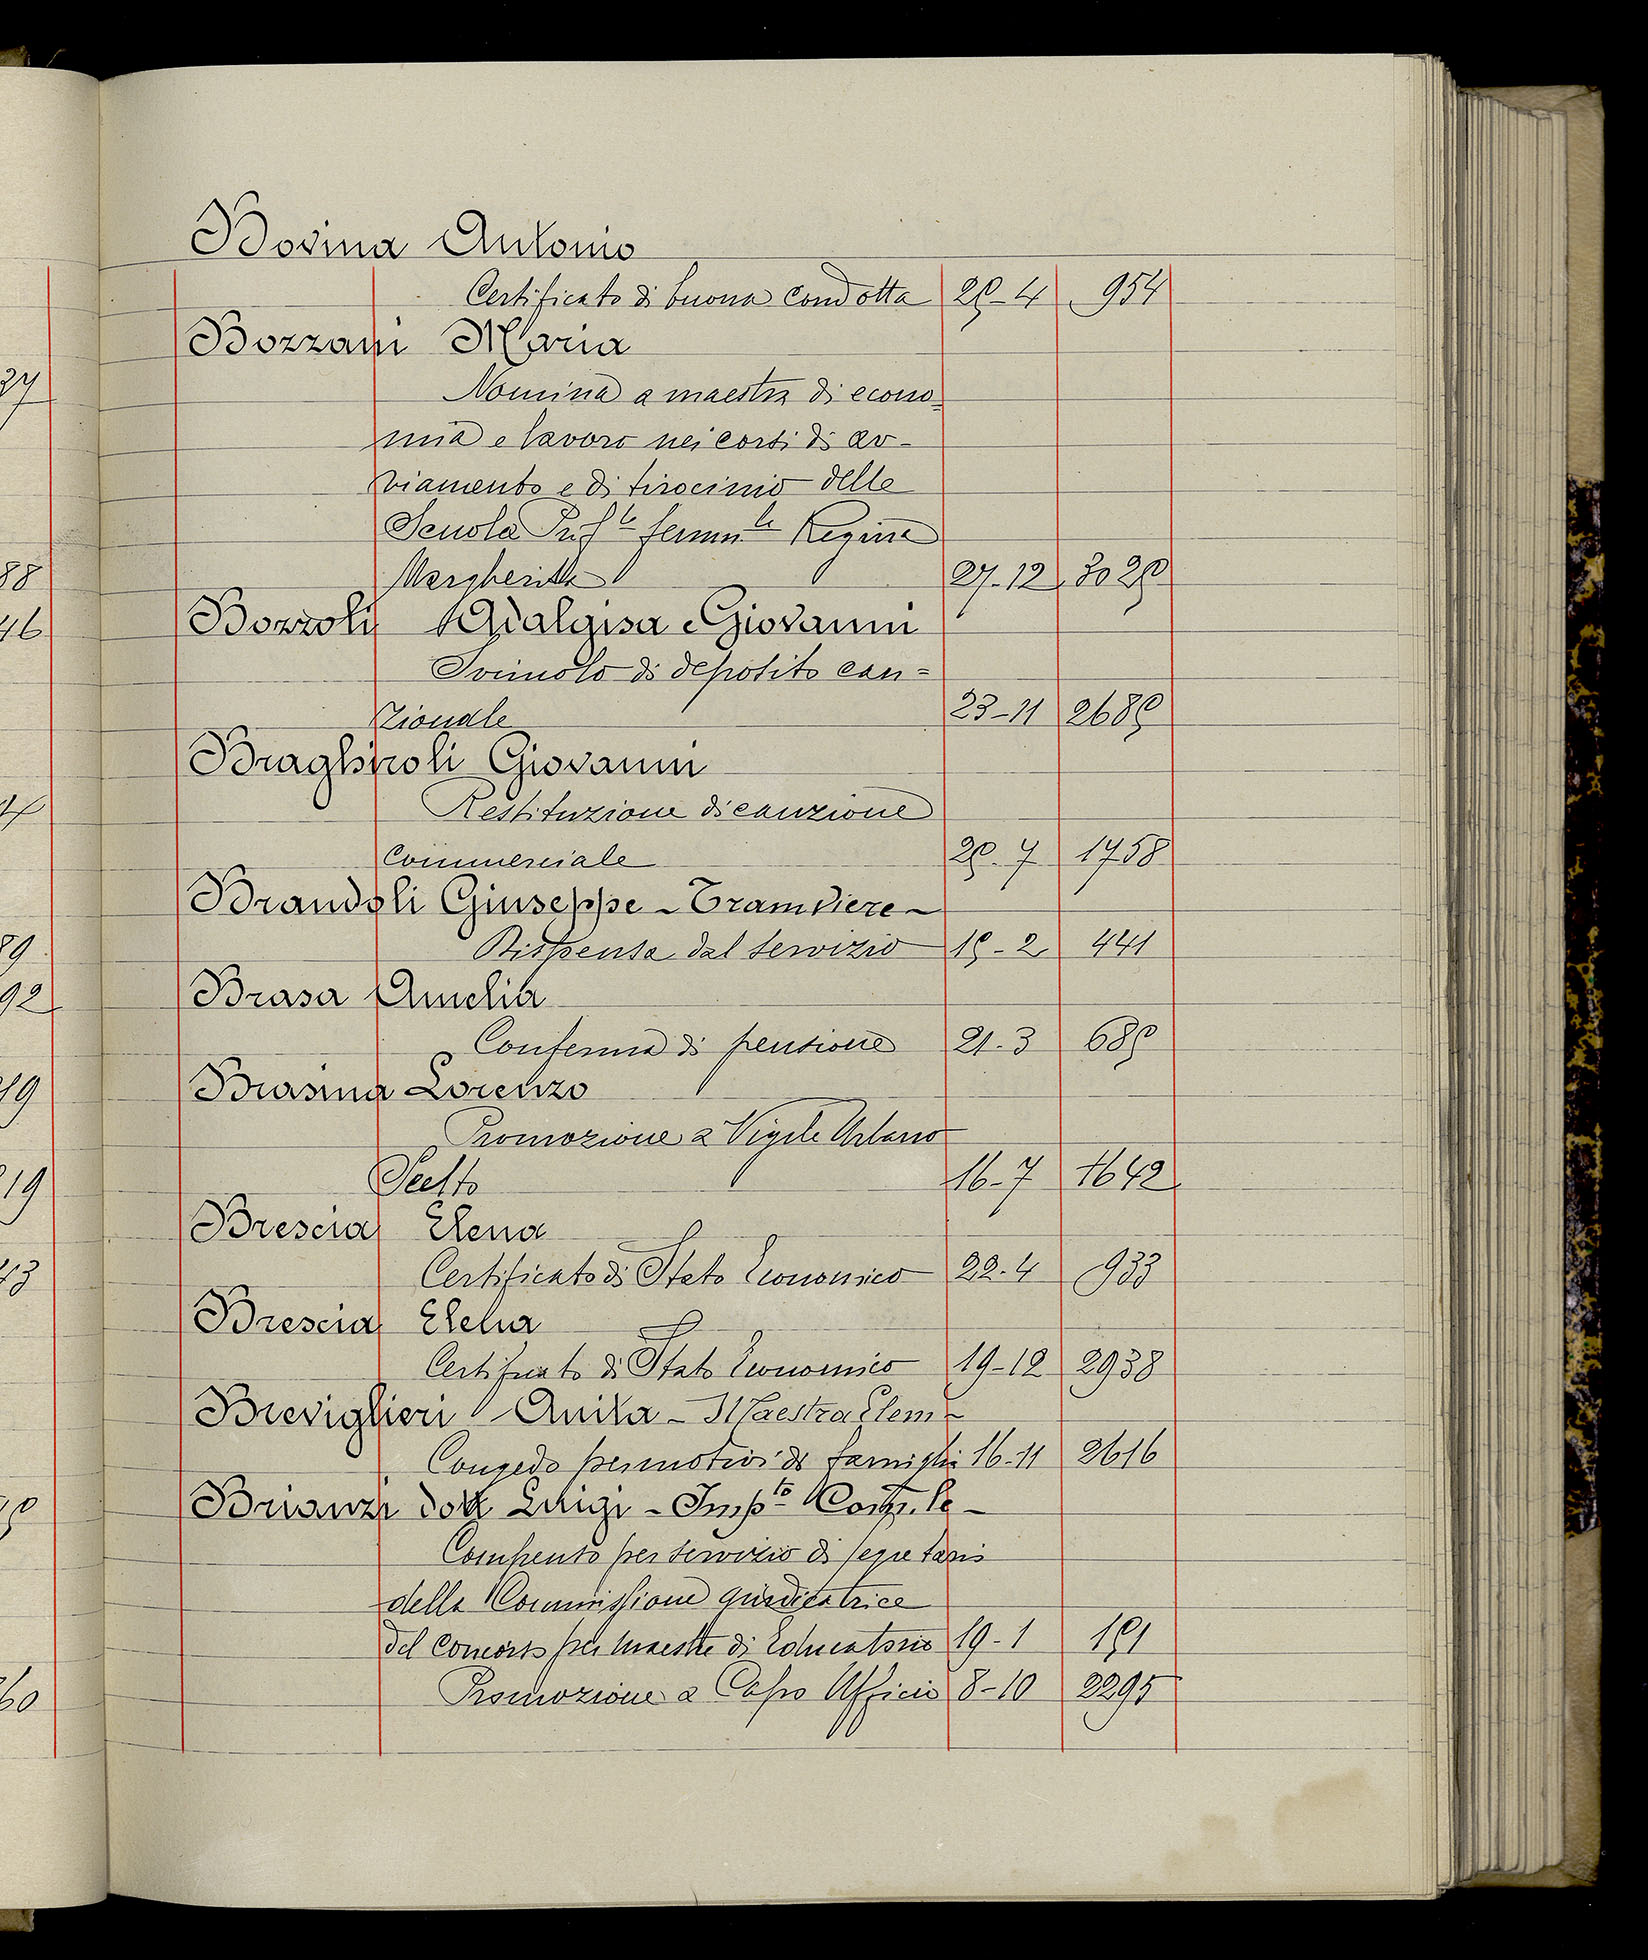 Bovina Antonio
Certificato di buona condotta 25-4 954
Bozzani Maria
Nomina a maestra di econo-
mia e lavoro nei corsi di av-
viamento e di tirocinio delle
Scuola Prof.le femm.le Regina
Margherita 27-12 3025
Bozzoli Adalgisa e Giovanni
Svincolo di deposito cau=
zionale 23-11 2685
Braghiroli Giovanni
Restituzione di cauzione
Commerciale 25-7 1758
Brandoli Giuseppe - Tramviere -
Dispensa dal servizio 15-2 441
Brasa Amelia
Conferma di pensione 21-3 685
Brasina Lorenzo
Promozione a Vigile Urbano
Scelto 16-7 1642
Brescia Elena
Certificato di Stato Economico 22-4 933
Brescia Clelia
Certificato di Stato Economico 19-12 2938
Breviglieri Anita - Maestra Elem -
Congedo per motivi di famiglia 16-11 2616
Brianzi dott Luigi - Imp.to Comp.le -
Compenso per servizio di segretario
della Commissione giudicatrice
del concorso per maestre di Educatorio 19-1 151
Promozione a Capo Ufficio 8-10 2295
37
88
46
89
92
19
19
43
60